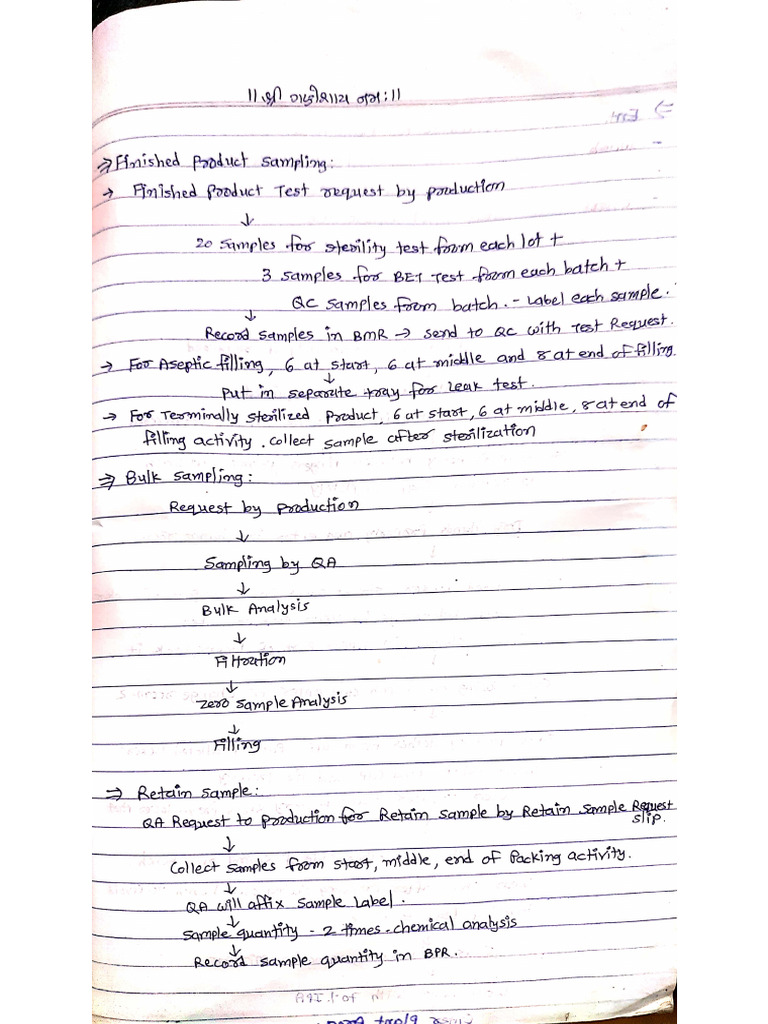 ॥ श्री गणेशाय नमः॥
⇒ Finished Product Sampling:
→ Finished Product Test request by production
↓
20 Samples for sterility test from each lot +
3 samples for BET Test from each batch +
QC samples from batch. - Label each sample.
↓
Record samples in BMR → send to QC with Test Request.
→ For Aseptic filling, 6 at start, 6 at middle and 8 at end of filling.
↓
Put in separate tray for Leak test.
→ For Terminally Sterilized Product, 6 at start, 6 at middle, 8 at end of
filling activity. collect sample after sterilization
⇒ Bulk Sampling:
Request by Production
↓
Sampling by QA
↓
Bulk Analysis
↓
Filtration
↓
Zero Sample Analysis
↓
Filling
⇒ Retain Sample:
QA Request to production for Retain Sample by Retain Sample Request
slip.
↓
Collect samples from start, middle, end of Packing activity.
↓
QA will affix Sample Label.
↓
Sample quantity - 2 times. chemical analysis
↓
Record sample quantity in BPR.